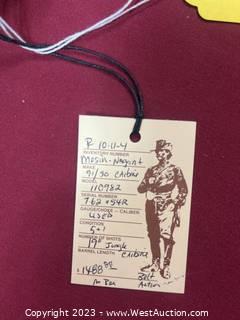 R 10-11-4
INVENTORY NUMBER
Mosin-Nagant
MAKE
91/30 Calibre
MODEL
110982
SERIAL NUMBER
7.62 x 54R
GAUGE/CHOKE - CALIBER
Used
CONDITION
5+1
NUMBER OF SHOTS
19" Jungle Calibre
BARREL LENGTH
1488
Bolt
Action
Copyright 2023 - www.BarNoneAuction.com